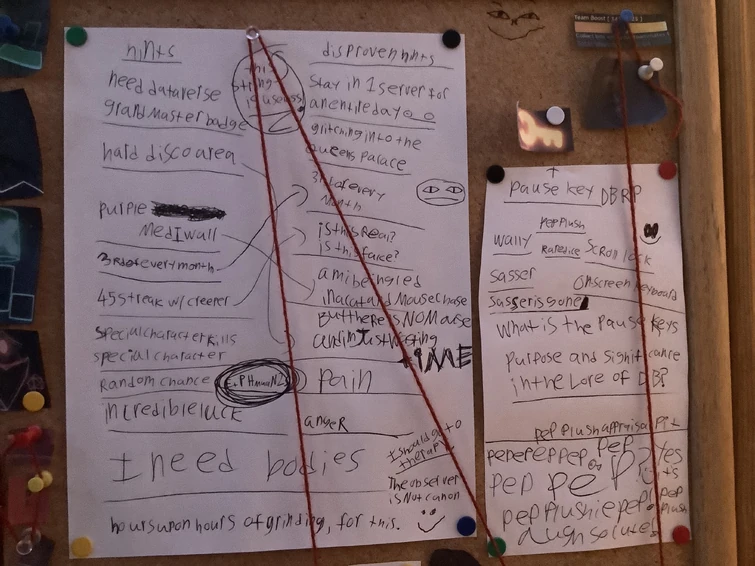 hints
need dataverse
grand master badge
hard disco area
purple
Med I wall
3rd of every month
45 streak w/ creeper
special character kills
special character
Random chance
incredible luck
I need bodies
hours upon hours of grinding, for this.
this
string
is useless
disproven hints
Stay in 1 server for
an entire day
glitching into the
queens palace
3rd of every
month
is this Real?
is this farce?
am i being led
in a cat and Mouse chase
But there is No Mouse
and im Just wasting
TIME
pain
anger
I should go to
therapy
The observer
is Not canon
Team Boost
pause key DBRP
pep plush
wally
Rare dice
Scroll lock
sasser
onscreen keyboard
sasser is gone
What is the pause keys
purpose and significance
in the Lore of DB?
pep plush appraisal
pep pep pep pep pep
pep or pep?
Yes
it's
pep
plush
pep plushie pep!